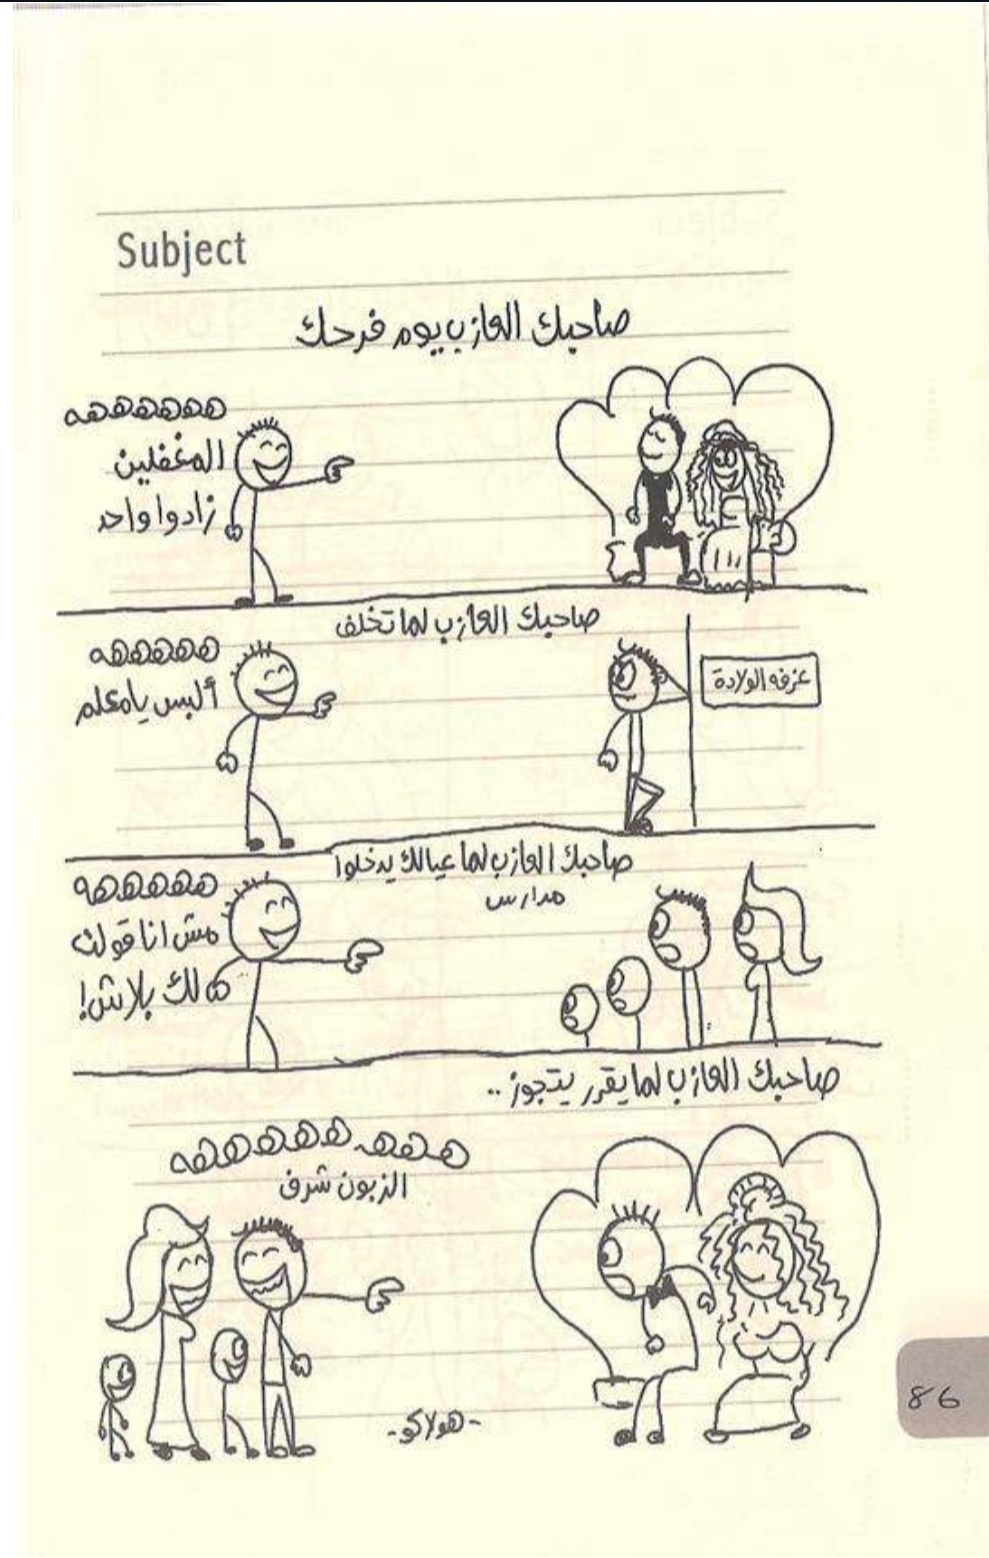 Subject
صاحبك العازب يوم فرحك
هههههههه
المغفلين
زادوا واحد
صاحبك العازب لما تخلف
ههههههه
ألبس يا معلم
غرفه الولادة
صاحبك العازب لما عيالك يدخلوا
مدارس
ههههههه
مش انا قولت
لك بلاش!
صاحبك العازب لما يقرر يتجوز..
هههه ههههههه
الزبون شرف
-هولاكو-
86